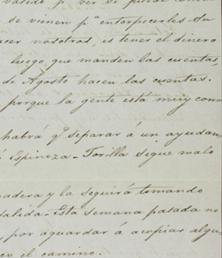 valido p. ver si puede
se vienen pª entorpecerles su
aser nosotros, es tener el dinero
luego que manden las cuentas,
de Agosto hacen las cuentas.
porque la gente está muy con
habra qº separar á un ayudan
Espinoza - Torilla sigue malo
madera y la seguirá tomando
salida. Esta semana pasada no
por aguardar a acopiar algu
en el camino.